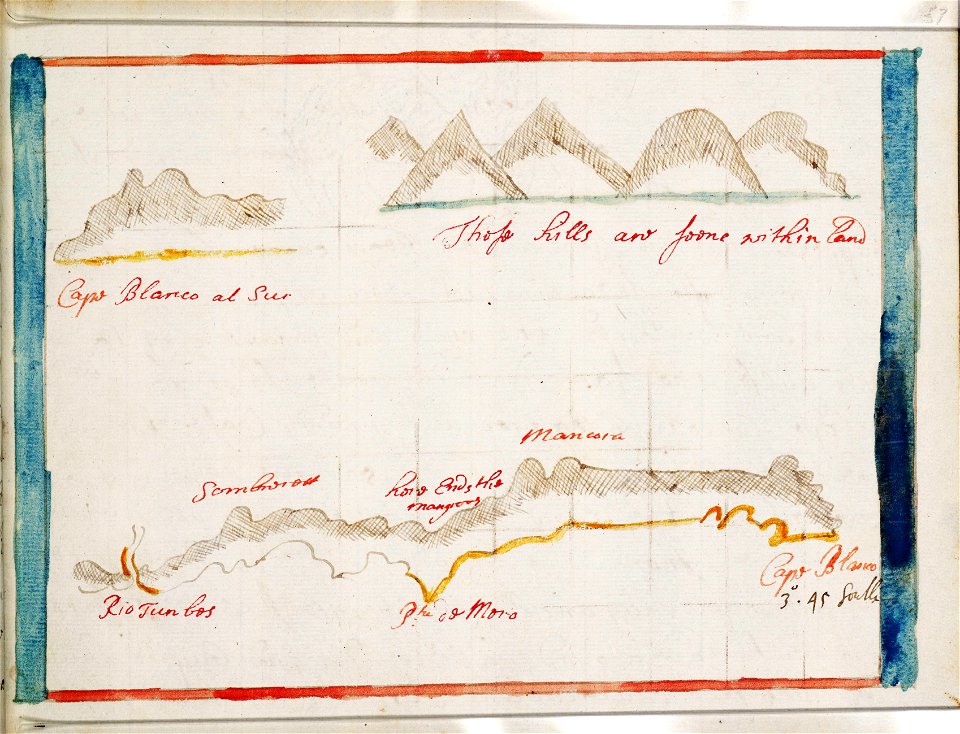 57
Those hills are seene within land
Cape Blanco al Sur
Mancora
Sombrerett
here Ends the
mangroves
Cape Blanco
3°. 45 South
Rio Tunbes
Pta de Mero